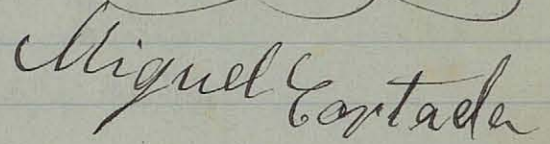 Miguel Cortada